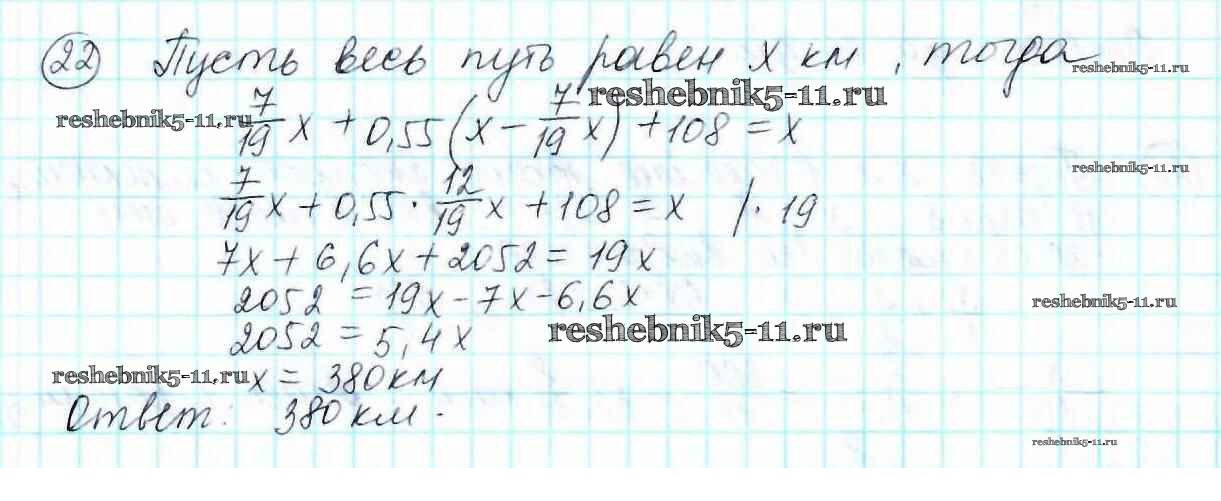 22 Пусть весь путь равен x км, тогда
reshebnik5-11.ru
reshebnik5-11.ru
reshebnik5-11.ru
7/19 x + 0,55 (x - 7/19 x) + 108 = x
reshebnik5-11.ru
7/19 x + 0,55 · 12/19 x + 108 = x | · 19
7x + 6,6x + 2052 = 19x
2052 = 19x - 7x - 6,6x
reshebnik5-11.ru
2052 = 5,4x
reshebnik5-11.ru
reshebnik5-11.ru
x = 380 км
Ответ: 380 км.
reshebnik5-11.ru